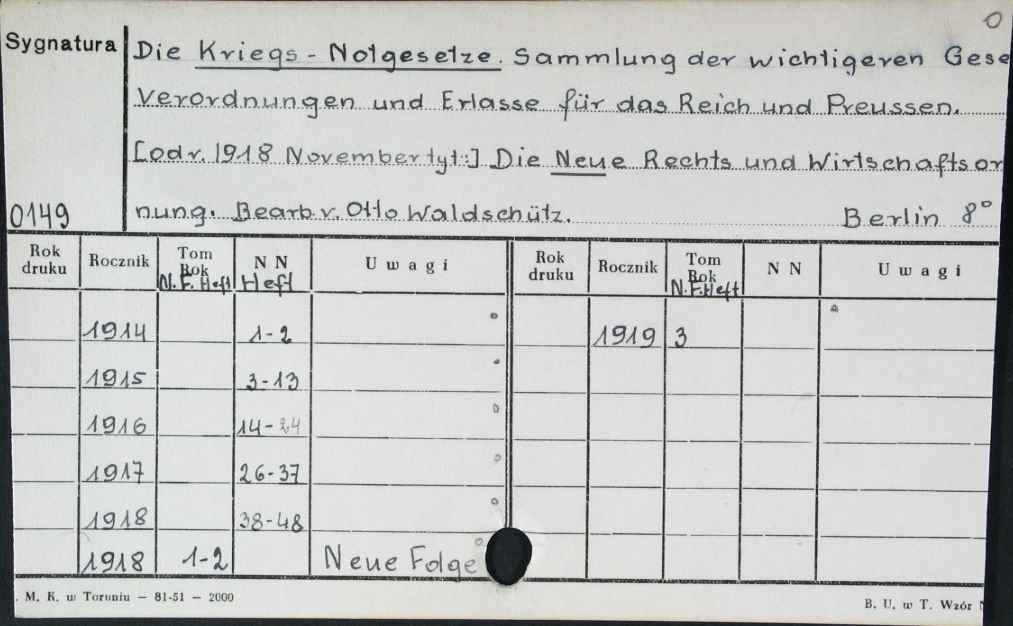 0
Sygnatura
Die Kriegs-Notgesetze. Sammlung der wichtigeren Gese
Verordnungen und Erlasse für das Reich und Preussen.
[odr. 1918 November tyt:] Die Neue Rechts und Wirtschaftsor
0149 nung. Bearb. v. Otto Waldschütz. Berlin 8°
Rok druku Rocznik Tom Rok N. F. Heft NN Heft Uwagi Rok druku Rocznik Tom Rok N. F. Heft NN Uwagi
1914 1-2 1919 3
1915 3-13
1916 14-24
1917 26-37
1918 38-48
1918 1-2 Neue Folge
. M. K. w Toruniu — 81-51 — 2000 B. U. w T. Wzór